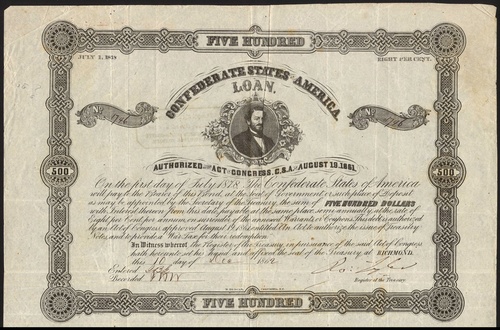 FIVE HUNDRED
JULY 1, 1878
EIGHT PER CENT.
CONFEDERATE STATES OF AMERICA
LOAN.
AUTHORIZED BY ACT OF CONGRESS, C.S.A. OF AUGUST 19, 1861.
500
500
On the first day of July 1878 The Confederate States of America
will pay to the Bearer of this Bond, at the seat of Government or such place of Deposit
as may be appointed by the Secretary of the Treasury, the sum of FIVE HUNDRED DOLLARS
with Interest thereon from this date, payable at the same place, semi annually, at the rate of
Eight per Cent per annum, on surrender of the annexed Warrants or Coupons. This debt is authorized
by an Act of Congress approved August 19, 1861 entitled An Act to authorize the issue of Treasury
Notes, and to provide a War Tax for their redemption.
In Witness whereof, the Register of the Treasury, in pursuance of the said Act of Congress
hath hereunto set his hand and affixed the seal of the Treasury, at RICHMOND,
this day of 1862
Entered
Recorded
Register of the Treasury
FIVE HUNDRED